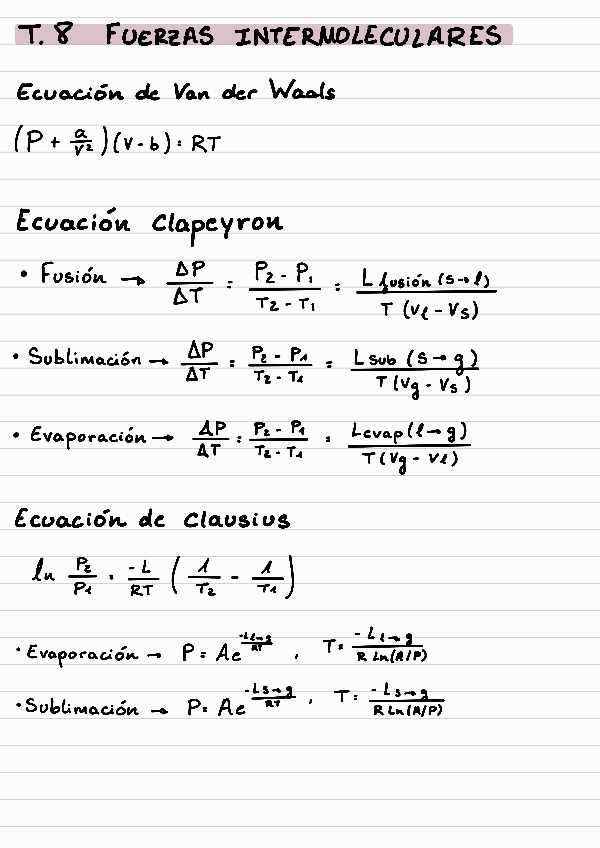 T. 8 FUERZAS INTERMOLECULARES
Ecuación de Van der Waals
(P + a/v²)(v - b) = RT
Ecuación Clapeyron
• Fusión → ΔP/ΔT = P₂ - P₁/T₂ - T₁ = L fusión (s→l)/T (Vl - Vs)
• Sublimación → ΔP/ΔT = P₂ - P₁/T₂ - T₁ = L sub (s→g)/T (Vg - Vs)
• Evaporación → ΔP/ΔT = P₂ - P₁/T₂ - T₁ = Levap (l→g)/T (Vg - Vl)
Ecuación de Clausius
ln P₂/P₁ = -L/RT (1/T₂ - 1/T₁)
• Evaporación → P = Ae^(-Ll→g/RT) , T = -Ll→g/R Ln(A/P)
• Sublimación → P = Ae^(-Ls→g/RT) , T = -Ls→g/R Ln(A/P)